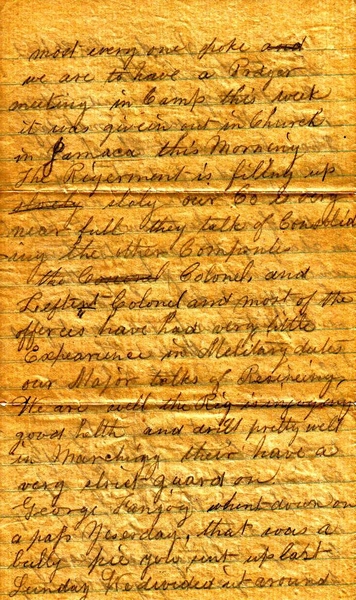 most every one spoke and
we are to have a Prayer
meeting in Camp this week
it was givein out in Church
in Jamaca this Morning
The Rigerment is filing up
slowly sloly our Co is very
near full they talk of Consolid
ing the other Companis
the Colonel Colonel and
Leftent Colonel and most of the
officers have had very little
Expearince in Military duties
our Major talks of Resineing
We are well the Reg is injoying
good hilth and drill pretty well
in Marching their have a
very strict guard on
George whent down on
a pass Yeserday, that was a
bully pie you sent up last
Sunday We divided it around